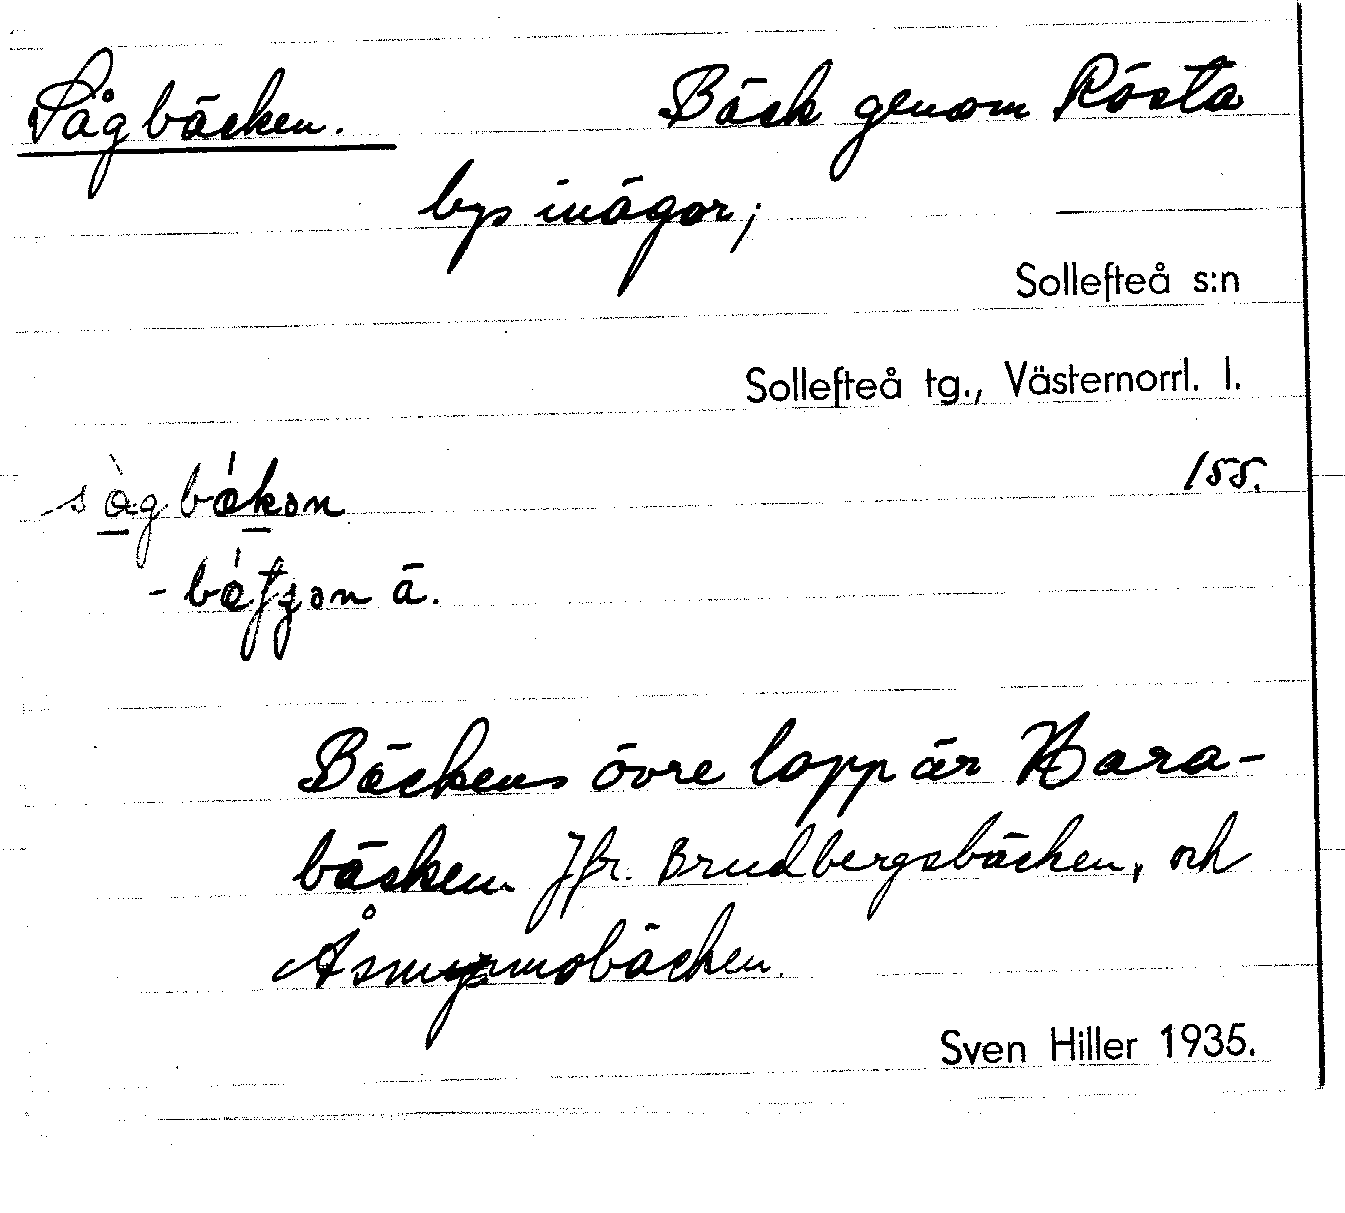 Sågbäcken. Bäck genom Rösta
bys inägor;
Sollefteå s:n
Sollefteå tg., Västernorrl. l.
155.
ä.
Bäckens övre lopp är Hara-
bäcken. Jfr. Brudbergsbäcken, och
Åsmyrmobäcken.
Sven Hiller 1935.